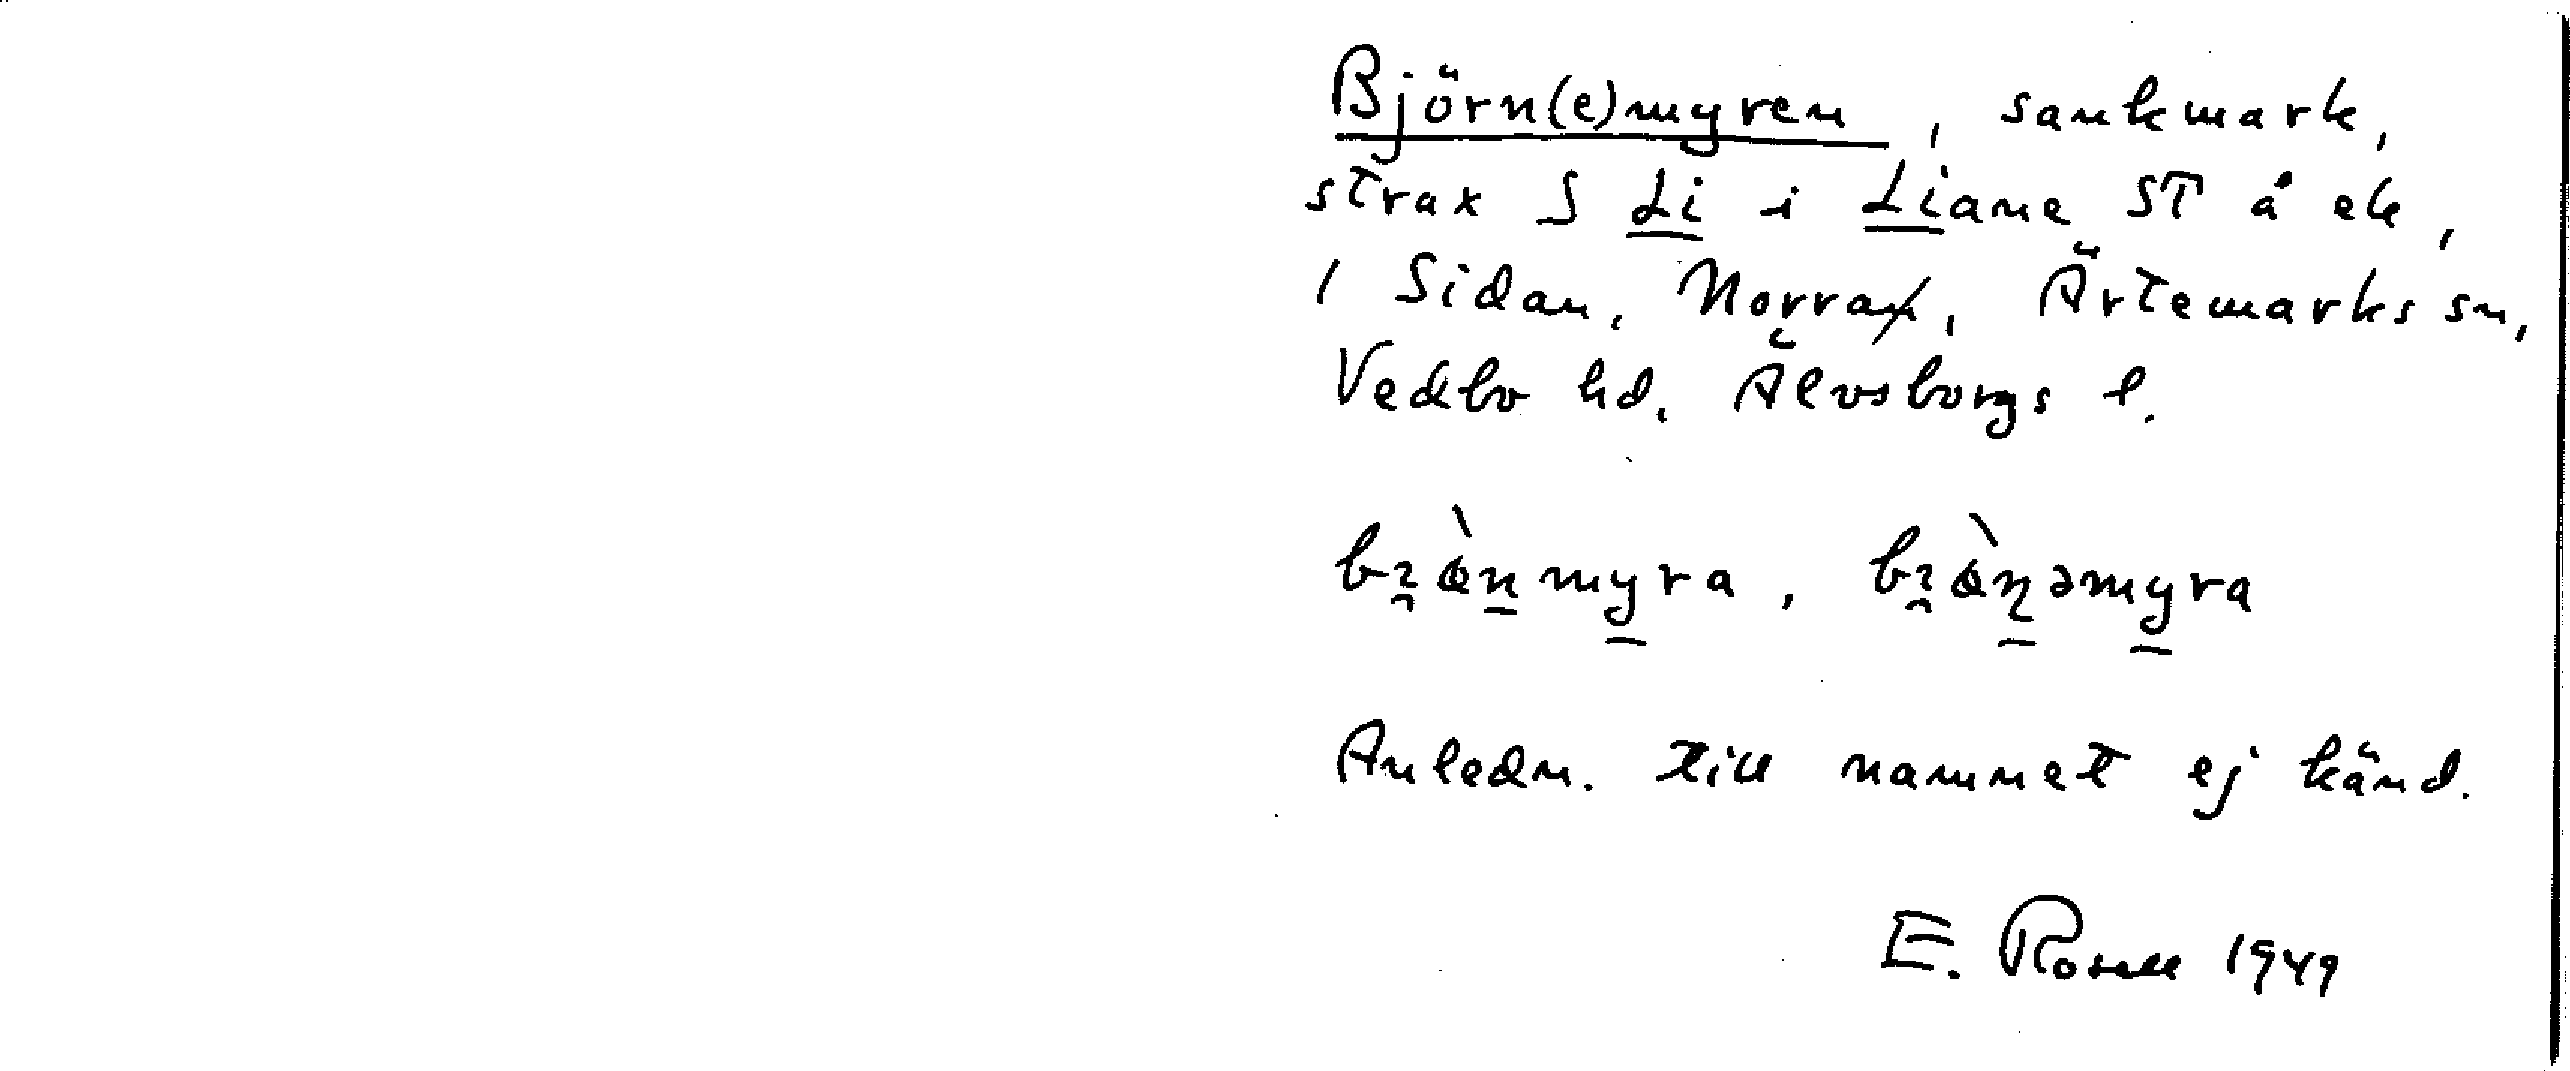 Björn(e)myren, sankmark,
strax S Li i Liane ST å ek,
1 Sidan, Norra, Ärtemarks sn,
Vedbo hd, Älvsborgs l.
Anledn. till namnet ej känd.
E. Rosell 1949